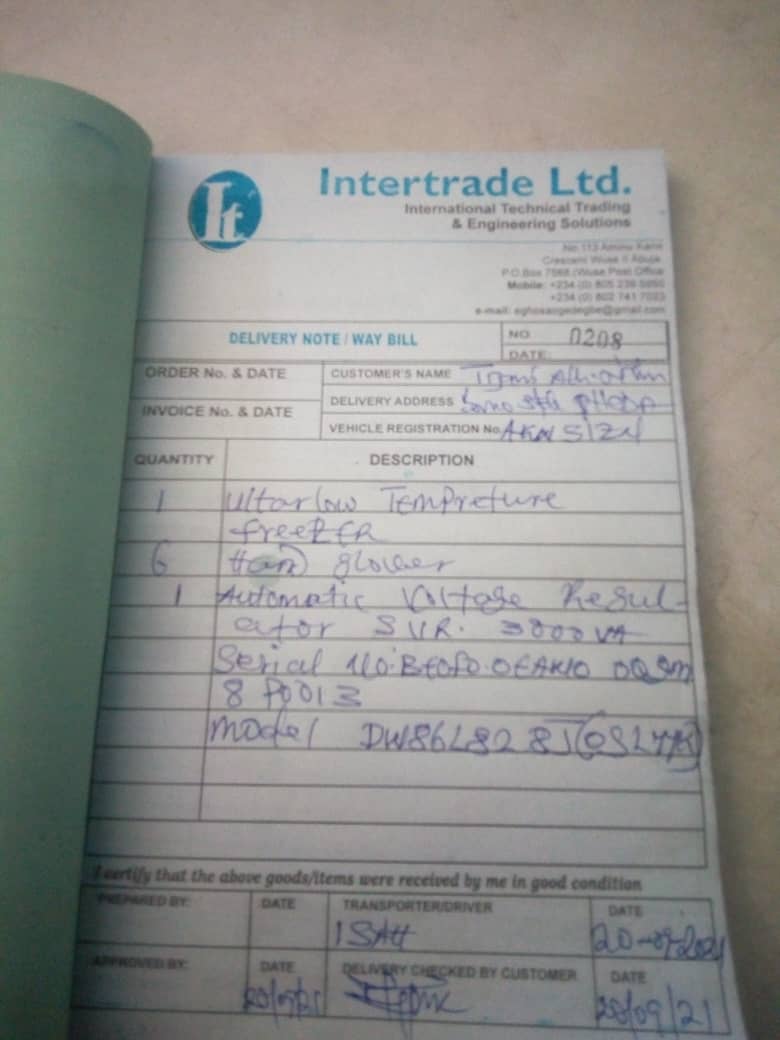 It
Intertrade Ltd.
International Technical Trading
& Engineering Solutions
No 113 Aminu Kano
Crescent Wuse II Abuja
P.O.Box 7568 (Wuse Post Office
Mobile: +234 (0) 805
+234 (0) 802 741
e-mail: @gmail.com
DELIVERY NOTE / WAY BILL
NO 0208
DATE:
ORDER No. & DATE
CUSTOMER'S NAME
INVOICE No. & DATE
DELIVERY ADDRESS
VEHICLE REGISTRATION No.
QUANTITY DESCRIPTION
1 Ultarlow Tempreture
freezer
6 Hand
1 Automatic Voltage Regul-
ator SVR. 3000 VA
Serial No.
8 P0013
Model DW86L828J
I certify that the above goods/items were received by me in good condition
PREPARED BY: DATE TRANSPORTER/DRIVER DATE
ISAH 20-09-2021
APPROVED BY: DATE DELIVERY CHECKED BY CUSTOMER DATE
20/09/21